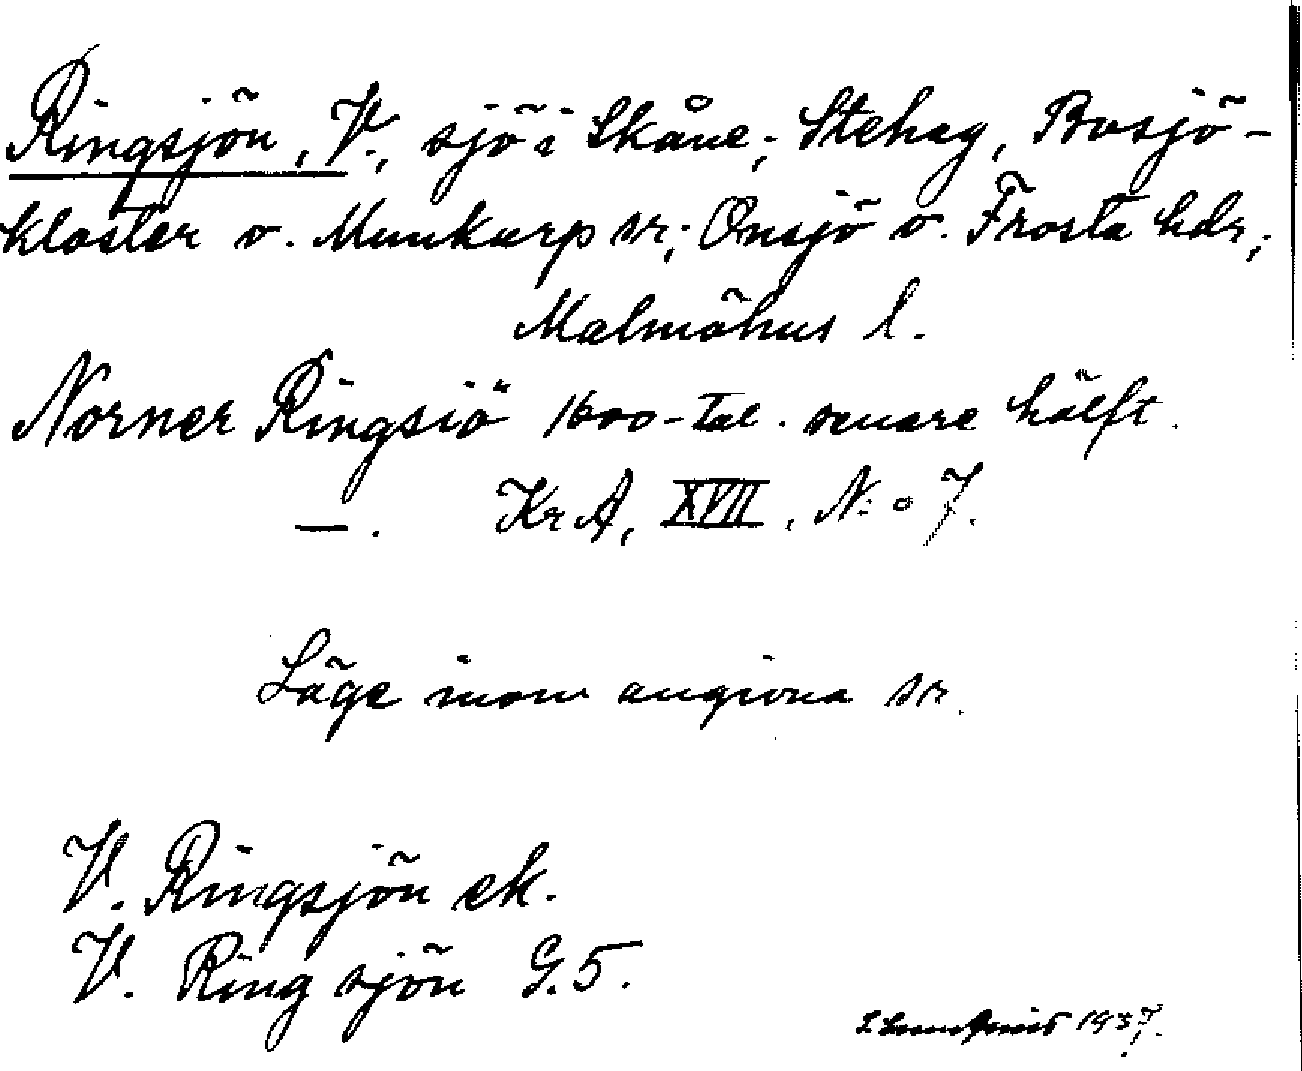 Ringsjön, V., sjö i Skåne; Stehag, Bosjö-
kloster o. Munkarp sr; Onsjö o. Frosta hdr;
Malmöhus l.
Norner Ringsiö 1600-tal. senare hälft.
—. KrA, XVII, N:o 7.
Läge inom angivna sr.
V. Ringsjön ek.
V. Ringsjön G.5.
1937.